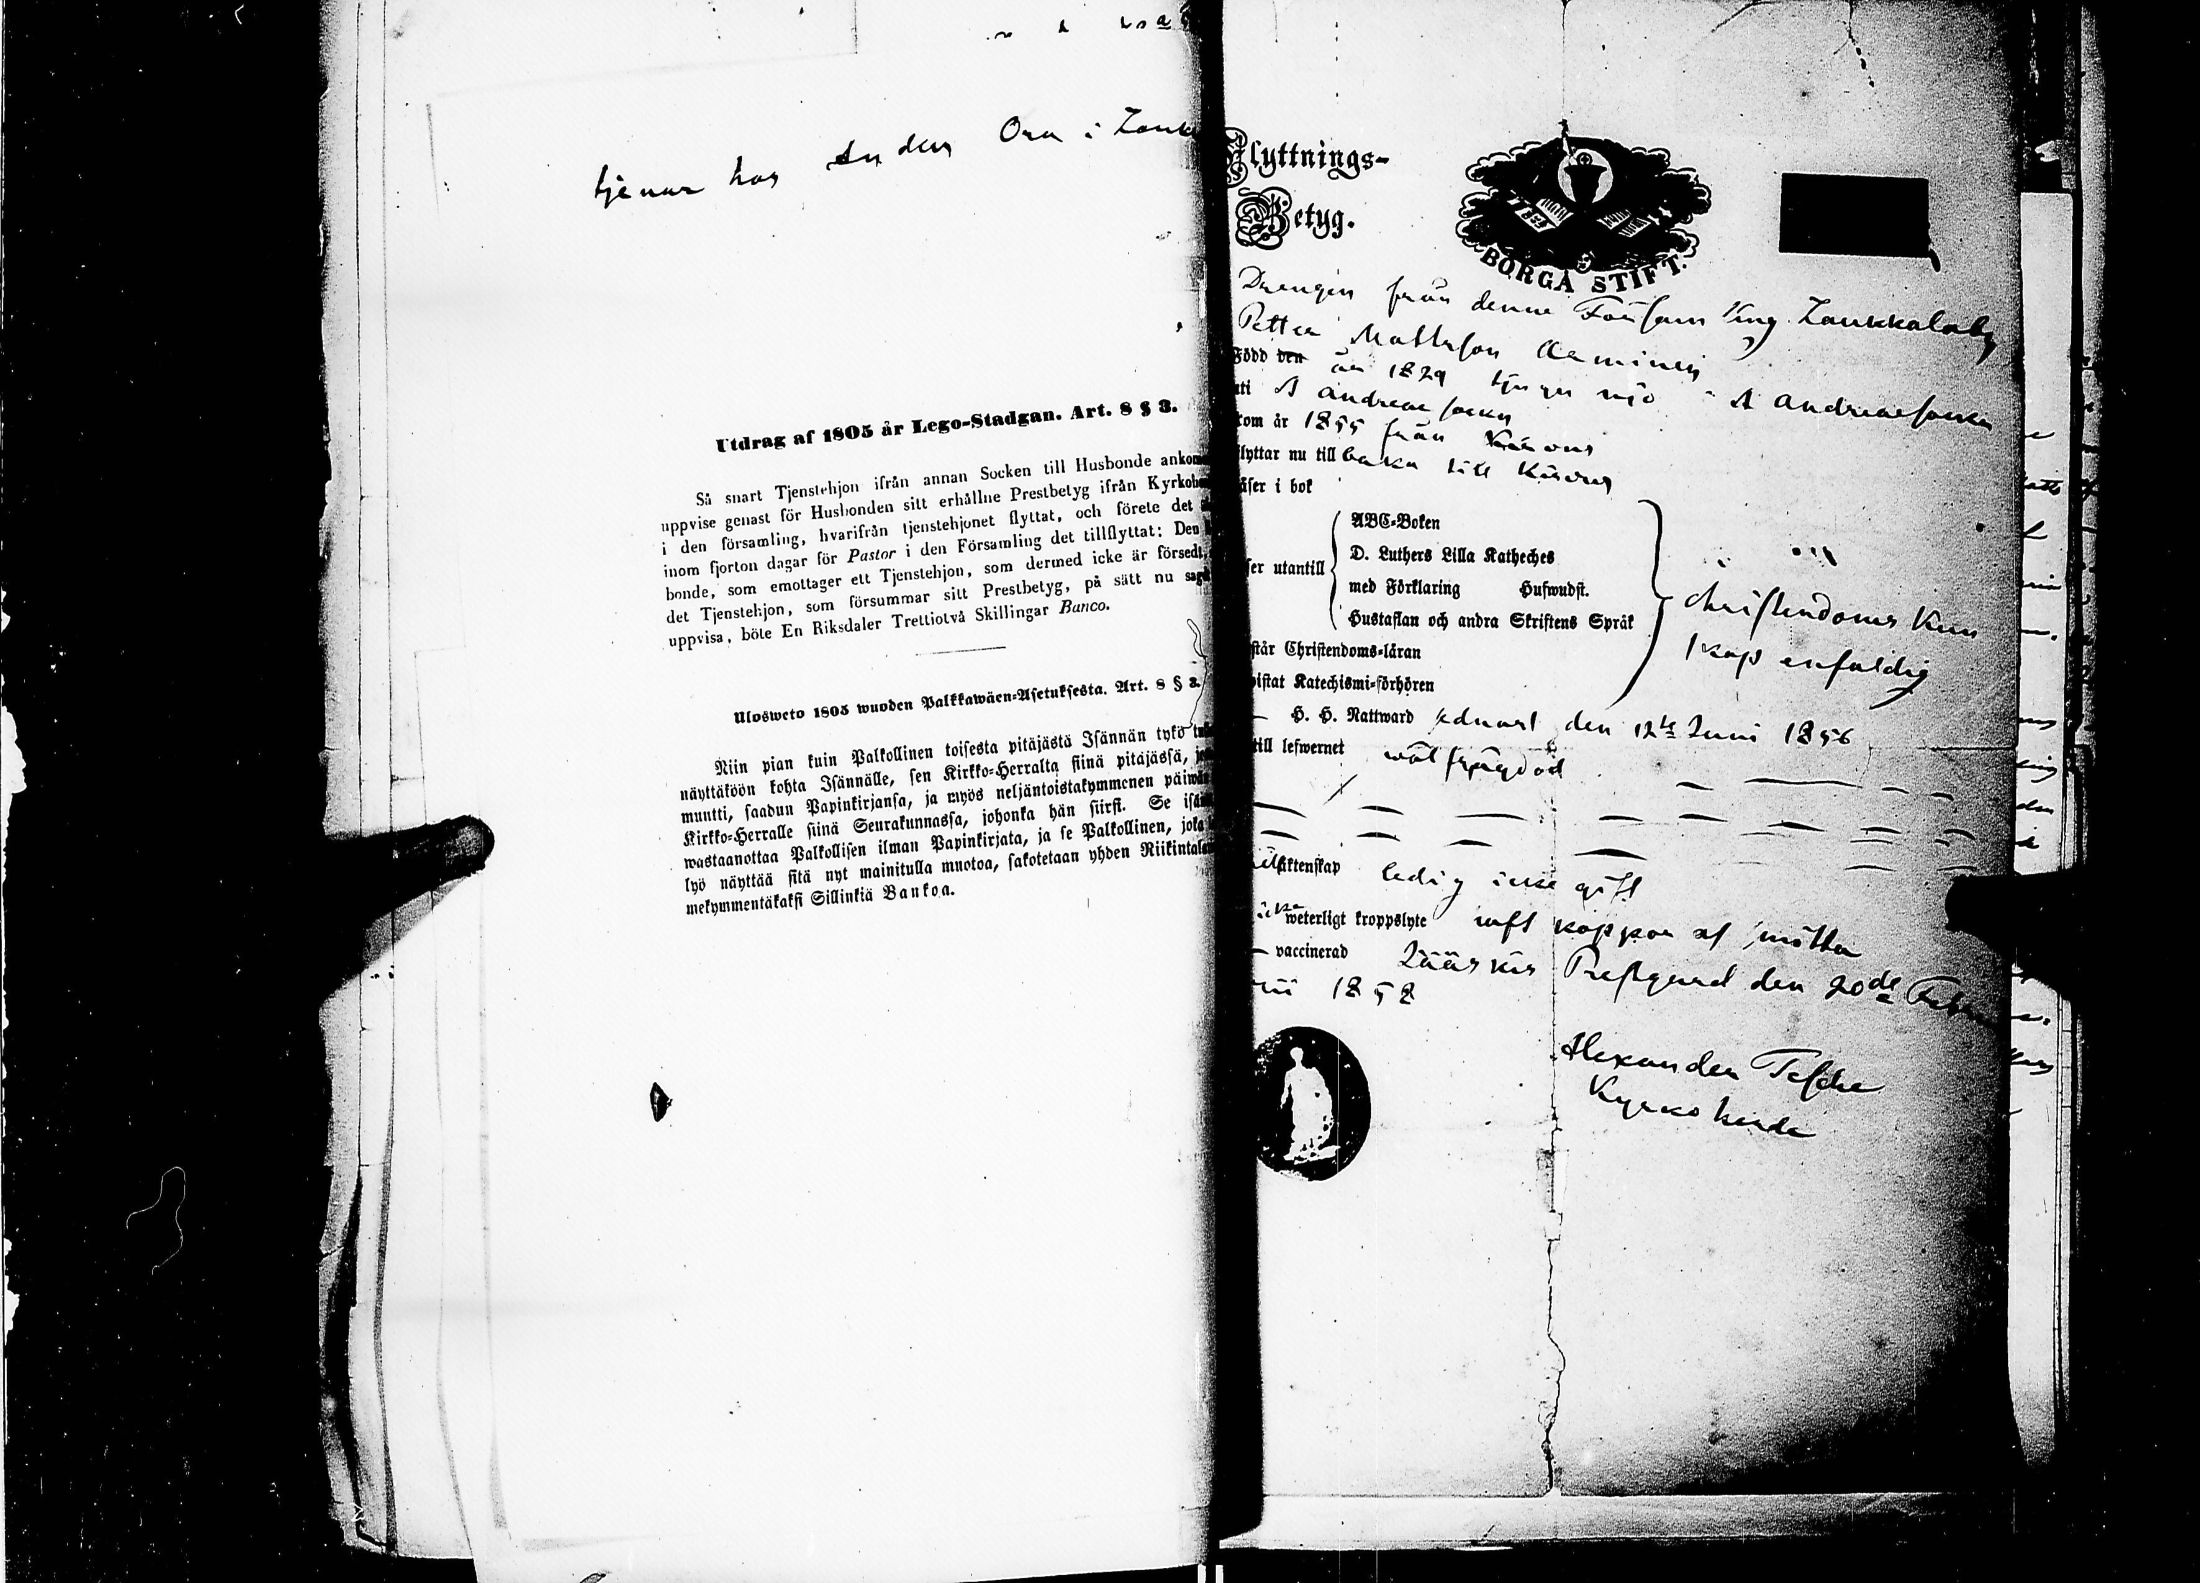 tjenar hos Anders Ora i Lauk
Utdrag af 1805 år Lego-Stadgan. Art. 8 § 3.
Så snart Tjenstehjon ifrån annan Socken till Husbonde ankom
uppvise genast för Husbonden sitt erhållne Prestbetyg ifrån Kyrkohe
i den församling, hvarifrån tjenstehjonet flyttat, och förete det
inom fjorton dagar för Pastor i den Församling det tillflyttat: Den
bonde, som emottager ett Tjenstehjon, som dermed icke är försedt,
det Tjenstehjon, som försummar sitt Prestbetyg, på sätt nu sagd
uppvisa, böte En Riksdaler Trettiotvå Skillingar Banco.
Ulosweto 1805 wuoden Palkkawäen-Asetuksesta. Art. 8 § 3.
Niin pian kuin Palkollinen toisesta pitäjästä Isännän tykö tul
näyttäköön kohta Isännälle, sen Kirkko-Herralta siinä pitäjässä, jo
muutti, saadun Papinkirjansa, ja myös neljäntoistakymmenen päiwä
Kirkko-Herralle siinä Seurakunnassa, johonka hän siirsi. Se isän
wastaanottaa Palkollisen ilman Papinkirjata, ja se Palkollinen, joka
lyö näyttää sitä nyt mainitulla muotoa, sakotetaan yhden Riikintale
mekymmentäkaksi Sillinkiä Bankoa.
Flyttnings-
Betyg.
BORGÅ STIFT.
Drengen från denne Församling Laukkalaby
Petter Mattsson
Född den år 1829
uti A Andreae socken A Andreae socken
kom år 1855 från Kivenus
flyttar nu till baka till Kivenus
läser i bok
ABC-Boken
D. Luthers Lilla Katheches
ser utantill
med Förklaring Huswudst.
Hustaflan och andra Skriftens Språk
Christendoms Kun
skap enfaldig
står Christendoms-läran
bistat Katechismi-förhören
H. H. Nattward den 12te Juni 1856
till lefwernet wäl frägdad
äktenskap ledig icke gift
weterligt kroppslyte haft koppor af smitta
vaccinerad Jääskis Prestgård den 20de Febr
1858
Alexander Tesche
Kyrkoherde